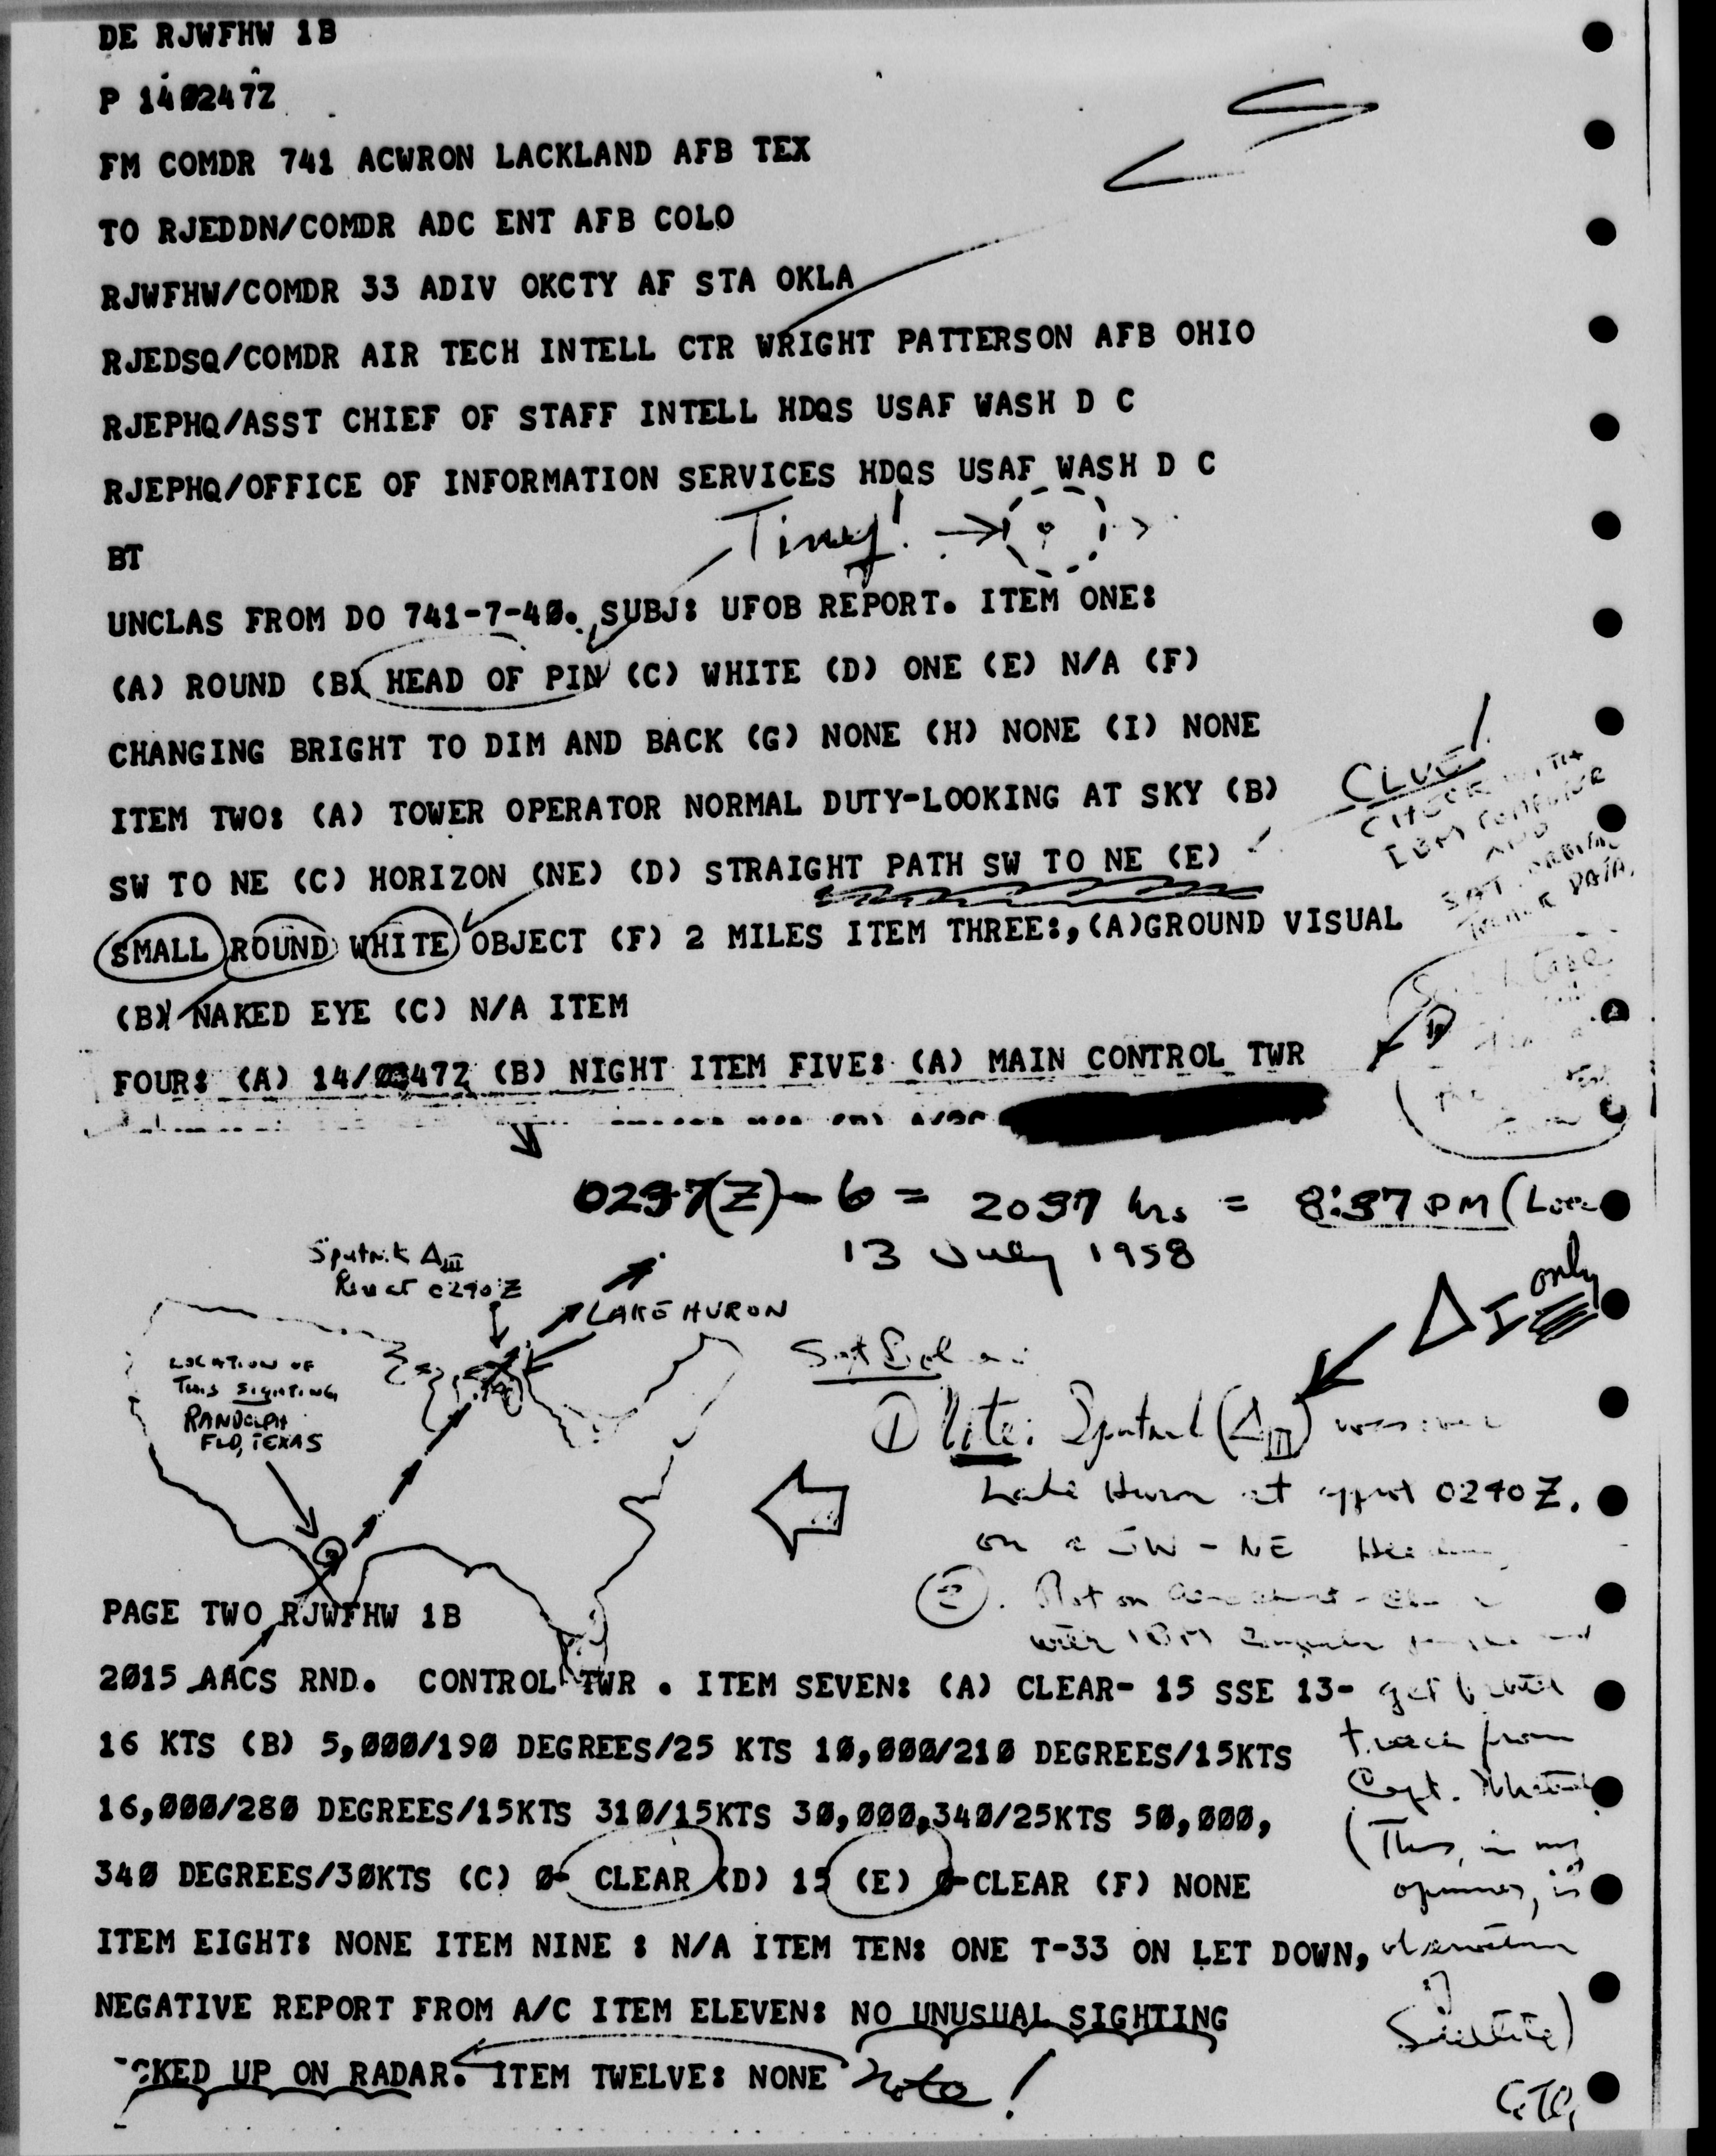 DE RJWFHW 1B
P 140247Z
FM COMDR 741 ACWRON LACKLAND AFB TEX
TO RJEDDN/COMDR ADC ENT AFB COLO
RJWFHW/COMDR 33 ADIV OKCTY AF STA OKLA
RJEDSQ/COMDR AIR TECH INTELL CTR WRIGHT PATTERSON AFB OHIO
RJEPHQ/ASST CHIEF OF STAFF INTELL HDQS USAF WASH D C
RJEPHQ/OFFICE OF INFORMATION SERVICES HDQS USAF WASH D C
Tiny!
BT
UNCLAS FROM DO 741-7-40. SUBJ: UFOB REPORT. ITEM ONE:
(A) ROUND (B) HEAD OF PIN (C) WHITE (D) ONE (E) N/A (F)
CHANGING BRIGHT TO DIM AND BACK (G) NONE (H) NONE (I) NONE
ITEM TWO: (A) TOWER OPERATOR NORMAL DUTY-LOOKING AT SKY (B)
SW TO NE (C) HORIZON (NE) (D) STRAIGHT PATH SW TO NE (E)
SMALL ROUND WHITE OBJECT (F) 2 MILES ITEM THREE:,(A)GROUND VISUAL
(B) NAKED EYE (C) N/A ITEM
FOUR: (A) 14/0347Z (B) NIGHT ITEM FIVE: (A) MAIN CONTROL TWR
CLUE!
CHECK WITH
IBM COMPUTER
AND
SAT. ORBITAL
TRACK DATA.
0237(Z) - 6 = 2037 hrs = 8:37 PM (
13 July 1958
Sputnik Δ III
0240 Z
LAKE HURON
LOCATION OF
THIS SIGHTING
RANDOLPH
FLD, TEXAS
Δ I only
① Note: Sputnik (Δ III) was over
Lake Huron at approx 0240 Z.
on a SW - NE
②. Plot on
with IBM
get
track from
Capt.
(This, in my
opinion, is
observation
of
Satellite)
PAGE TWO RJWFHW 1B
2015 AACS RND. CONTROL TWR . ITEM SEVEN: (A) CLEAR- 15 SSE 13-
16 KTS (B) 5,000/190 DEGREES/25 KTS 10,000/210 DEGREES/15KTS
16,000/280 DEGREES/15KTS 310/15KTS 30,000,340/25KTS 50,000,
340 DEGREES/30KTS (C) 0- CLEAR (D) 15 (E) 0-CLEAR (F) NONE
ITEM EIGHT: NONE ITEM NINE : N/A ITEM TEN: ONE T-33 ON LET DOWN,
NEGATIVE REPORT FROM A/C ITEM ELEVEN: NO UNUSUAL SIGHTING
CKED UP ON RADAR. ITEM TWELVE: NONE
Note!